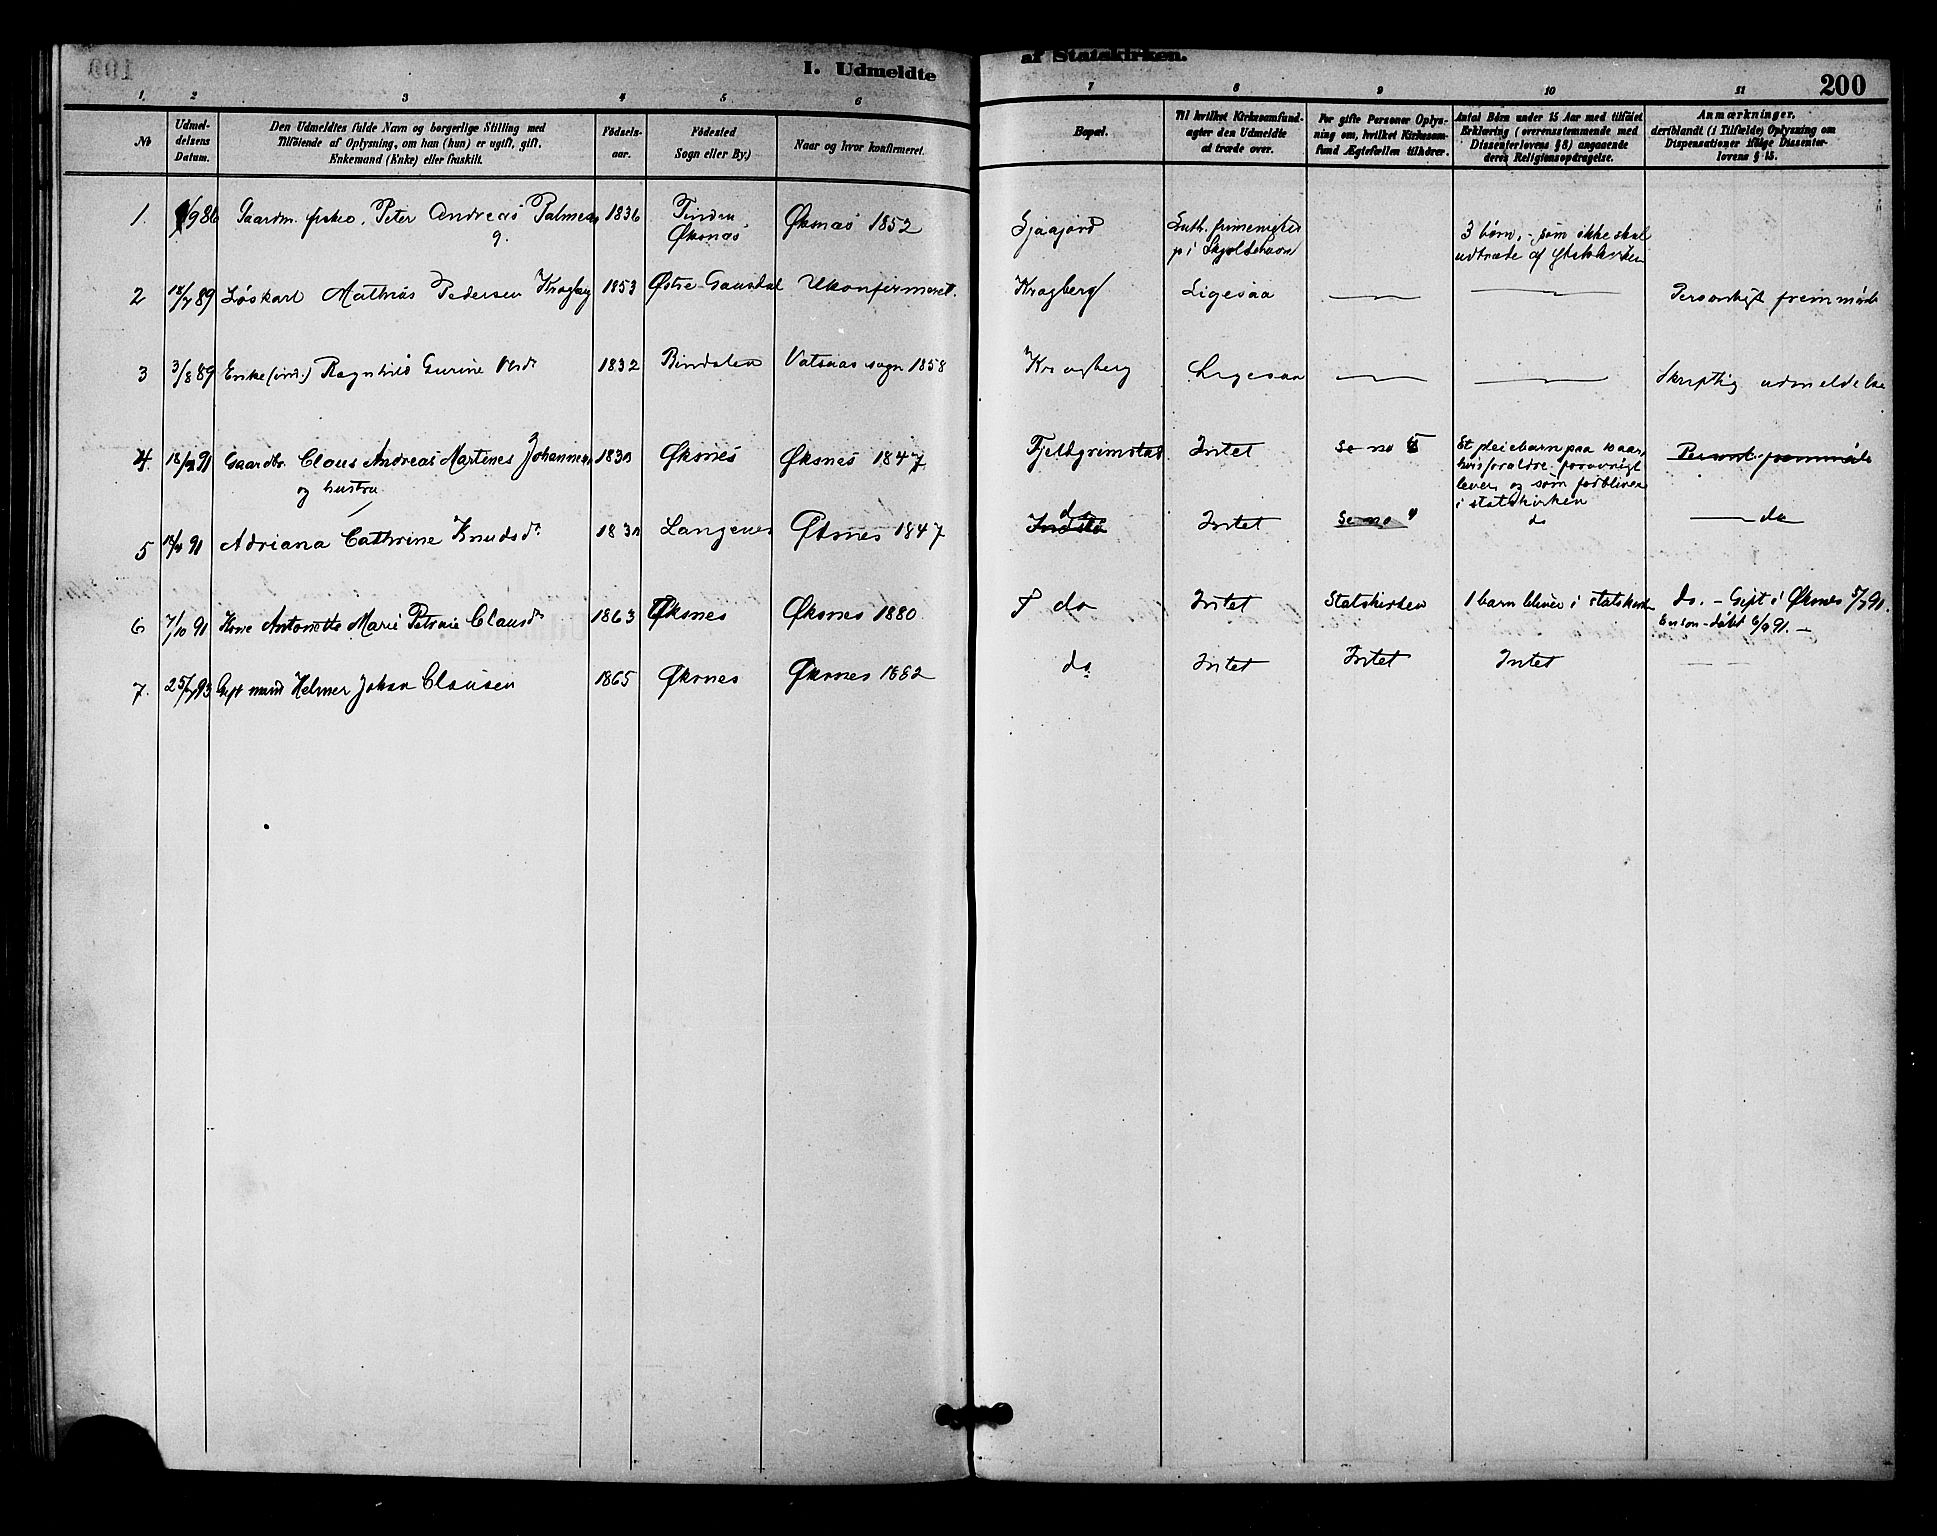 I. Udmeldte af Statskirken.
200
1. 2 3 4 5. 6 7 8 9 10 11
No
Udmeldelsens Datum.
Den Udmeldtes fulde Navn og borgerlige Stilling med
Tilföiende af Oplysning, om han (hun) er ugift, gift,
Enkemand (Enke) eller fraskilt.
Fødsels-
aar.
Födested
Sogn eller By.)
Naar og hvor konfirmeret.
Bopæl.
Til hvilket Kirkesamfund
agter den Udmeldte
at træde over.
For gifte Personer Oplys-
ning om, hvilket Kirkesam-
fund Ægtefællen tilhører.
Antal Børn under 15 Aar med tilføiet
Erklæring (overensstemmende med
Dissenterlovens § 8) angaaende
deres Religionsopdragelse.
Anmærkninger,
deriblandt (i Tilfælde) Oplysning om
Dispensationer ifølge Dissenter-
lovens § 15.
1. /9 86 Gaardm. fisker, Peter Andreas Palmesen 1836 Tinden Øksnæs Øksnæs 1852
g.
3 børn, - som ikke skal
udtræde af Statskirken
2 18/7 89 Løskarl Mathias Pedersen Kragberg 1853 Østre Gausdal Ukonfirmeret. Kragberg Ligesaa — — Personligt fremmødt
3 3/8 89 Enke (ind.) Ragnhild Gurine Olsdr 1832 Bindalen Vatsaas sogn 1858 Kragberg Ligesaa — — Skriftlig udmeldelse
4 18/ 91 Gaardbr. Claus Andreas Martines Johannesen Øksnes Øksnes 1847 Fjeldgrimstad Intet se no 5
og hustru
Et pleiebarn paa 10 aar,
hvis forældre
lever, og som forbliver
i statskirken
5 18/ 91 Adriana Cathrine Knudsdr Langenes Øksnes 1847 do Intet se no 4 do — do
6 7/10 91 Kone Antonette Marie Petrine Clausdr 1863 Øksnes Øksnes 1880 do Intet Statskirken 1 barn bliver i statskirken do. - Gift i Øksnes 5/7 91.
En søn - døbt 6/9 91. —
7. 25/ 93 Gift mand Helmer Johan Clausen 1865 Øksnes Øksnes 1882 do Intet Intet Intet